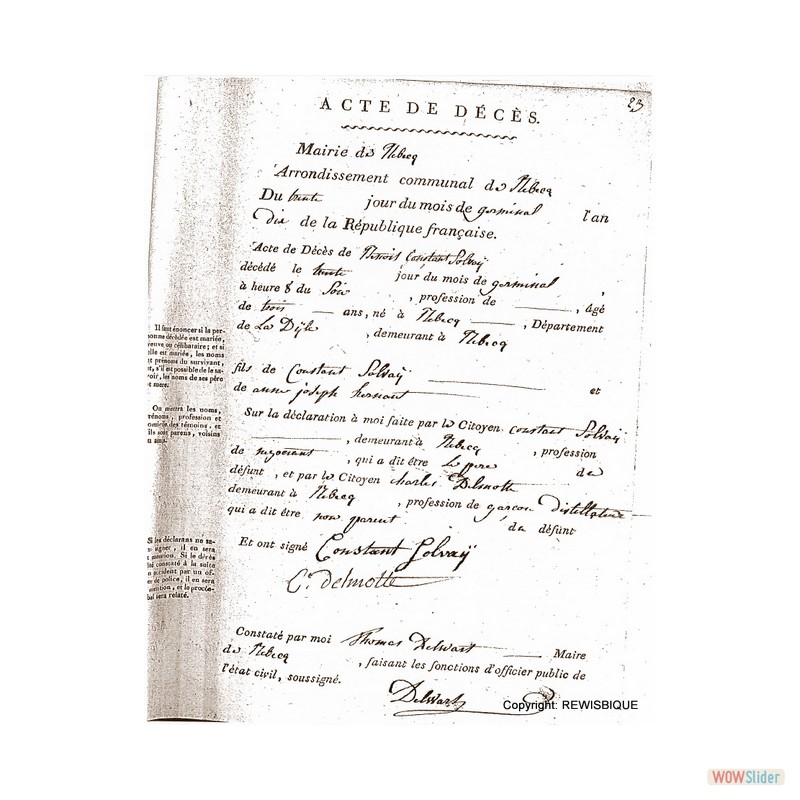 23
ACTE DE DÉCÈS.
Mairie de Rebecq
Arrondissement communal de Rebecq
Du trente jour du mois de germinal l'an
dix de la République française.
Acte de Décès de Benoit Constant Solvaÿ
décédé le trente jour du mois de germinal,
à heure 8 du Soir, profession de , âgé
de trois ans, né à Rebecq , Département
de La Dÿle , demeurant à Rebecq
fils de Constant Solvaÿ et
de anne joseph hernant
Sur la déclaration à moi faite par le Citoyen constant Solvaÿ
, demeurant à Rebecq , profession
de negociant , qui a dit être le pere du
défunt, et par le Citoyen charles Delmotte
demeurant à Rebecq , profession de garcon Distillateur
qui a dit être non parent du défunt
Et ont signé Constant Solvaÿ
C. delmotte
Constaté par moi Thomas Delwart Maire
de Rebecq , faisant les fonctions d'officier public de
l'état civil, soussigné.
Delwart
Il faut énoncer si la per-
sonne décédée est mariée,
veuve ou célibataire; et si
elle est mariée, les noms
et prénoms du survivant,
et, s'il est possible de le sa-
voir, les noms de ses père
et mere.
On mettra les noms,
prénoms, profession et
domicile des témoins, et
s'ils sont parens, voisins
ou amis.
Si les déclarans ne sa-
vent signer, il en sera
fait mention. Si le décès
a été constaté à la suite
d'accident par un of-
ficier de police, il en sera
fait mention, et le procès-
verbal sera relaté.
Copyright: REWISBIQUE
WOWSlider